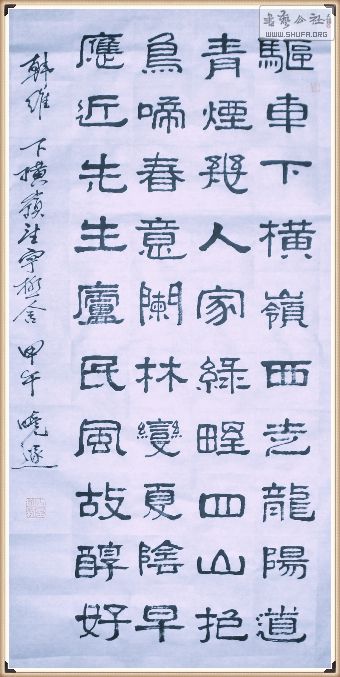 驅車下橫嶺西走龍陽道
青煙幾人家綠野四山抱
鳥啼春意闌林變夏陰早
應近先生廬民風故醇好
韓維 下橫嶺望寧極舍 甲午 曉逐
書藝公社
WWW.SHUFA.ORG